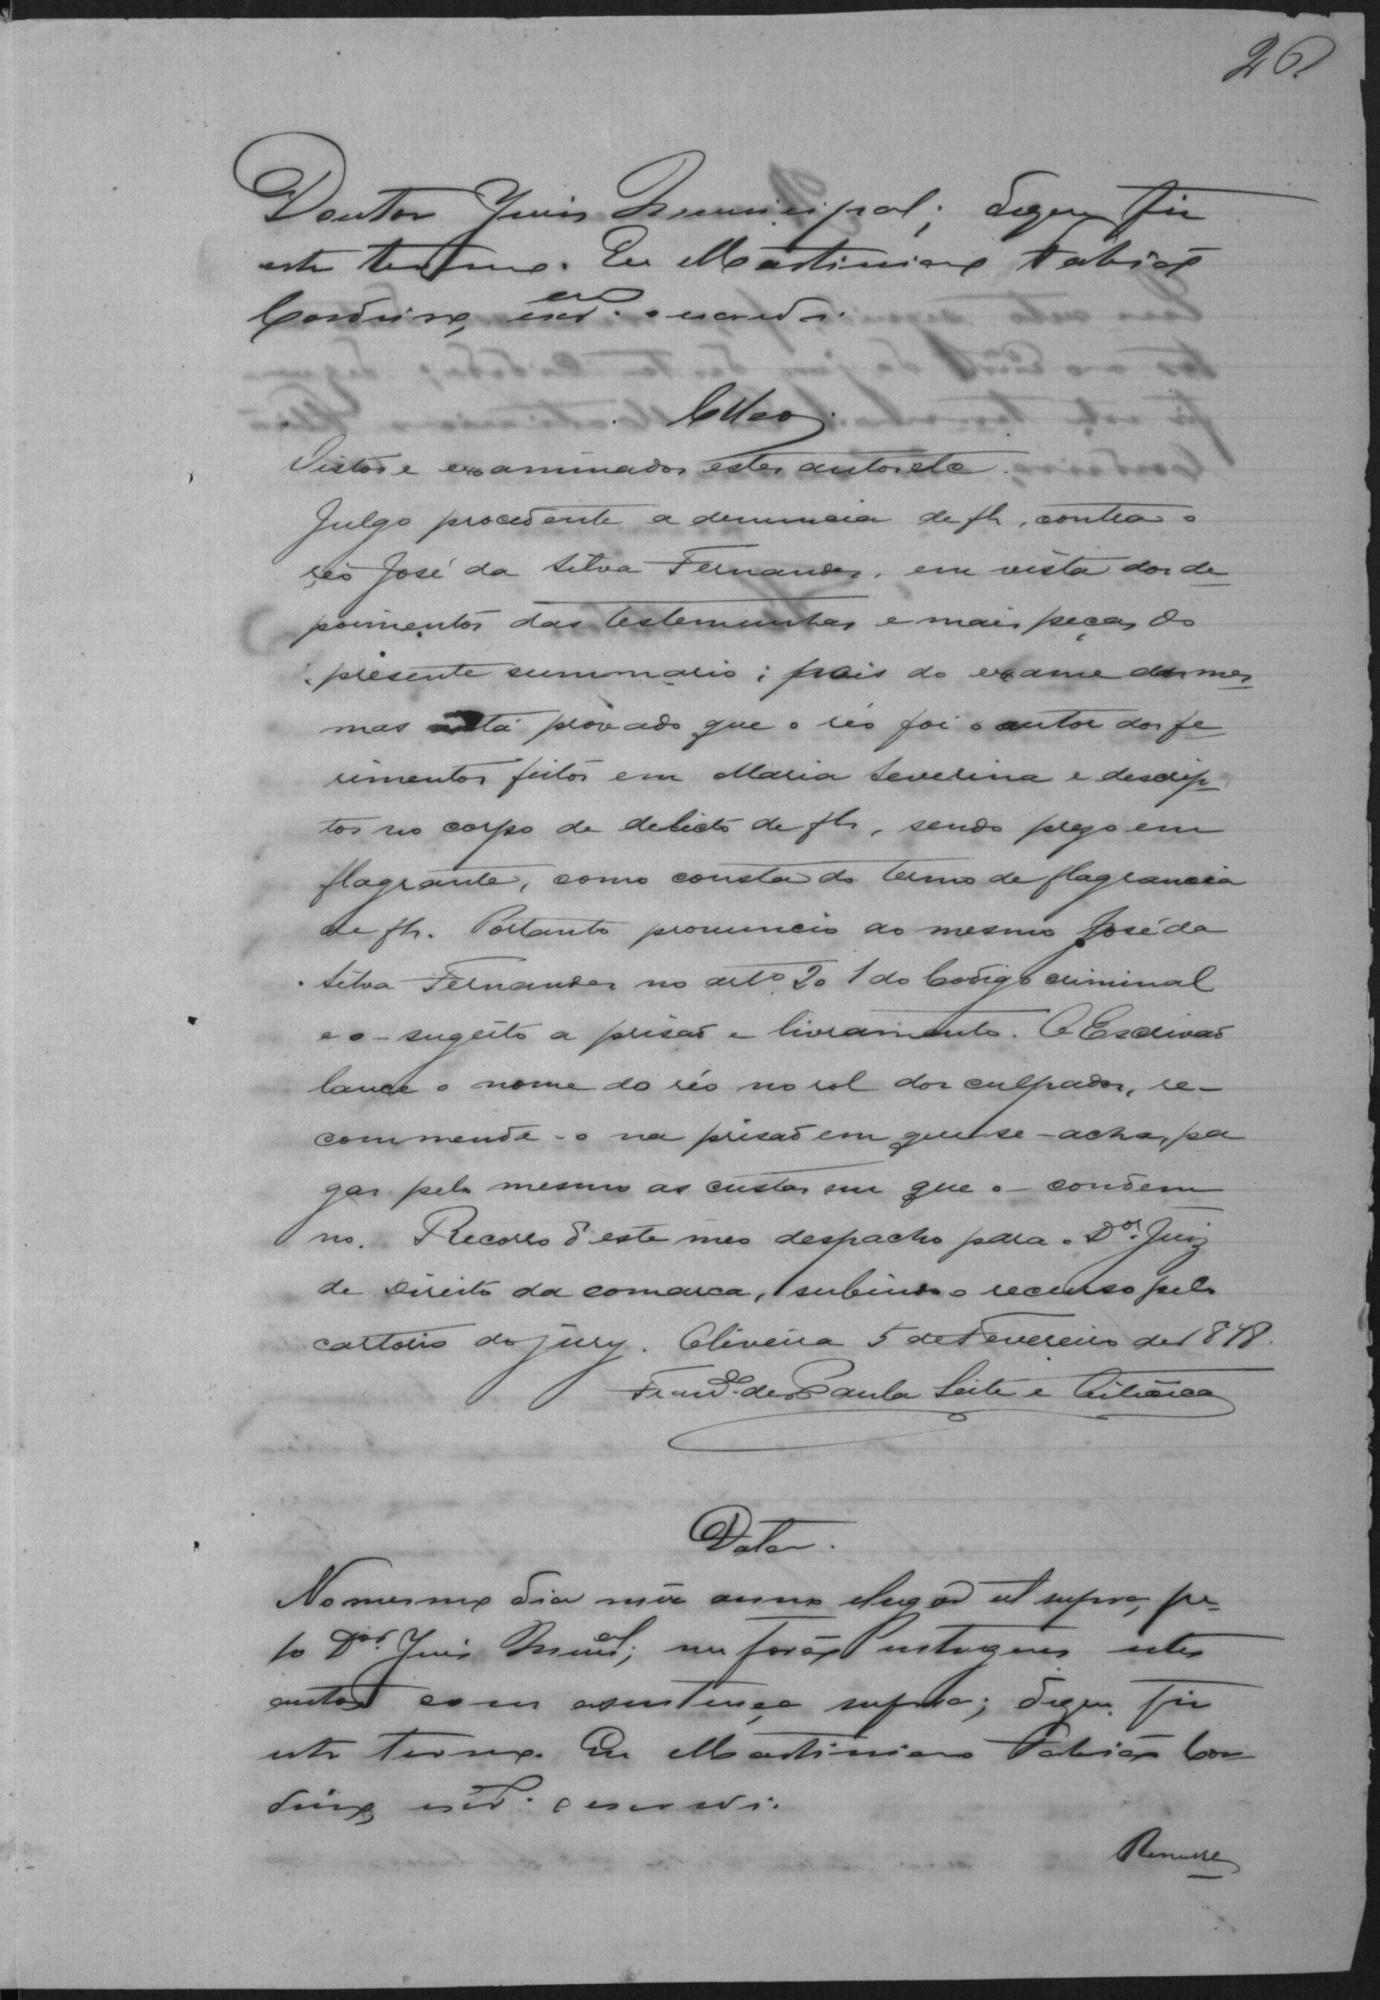 26
Doutor Juis Municipal; do que fiz
este termo. Eu Martiniano Fabião
Cordeiro, escr.am o escrevi.
Cllos
Vistos e examinados estes autos etc.
Julgo procedente a denuncia de fls, contra o
réo José da Silva Fernandes, em vista dos de
poimentos das testemunhas e mais peças do
presente summario; pois do exame das mes
mas está provado que o réo foi o autor dos fe
rimentos feitos em Maria Severina e descrip
tos no corpo de delicto de fls, sendo prezo em
flagrante, como consta do termo de flagrancia
de fls. Portanto pronuncio ao mesmo José da
Silva Fernandes no arto 201 do Codigo criminal
e o-sugeito a prisaõ e livramento. O Escrivaõ
lance o nome do réo no rol dos culpados, re-
commende-o na prisaõ em que se-acha, pa
gas pelo mesmo as custas em que o-condem
no. Recorro d'este meo despacho para o Dor Juiz
de Direito da comarca, subindo o recurso pelo
cartorio do jury. Oliveira 5 de Fevereiro de 1878.
Franco de Paula Leite e Oiticica
Data.
No mesmo dia mez anno e lugar ut supra, pe-
lo Dor Juis Mual; me foraõ entregues estes
autos com a sentença supra; do que fiz
este termo. Eu Martiniano Fabião Cor
deiro, escr.m o escrevi.